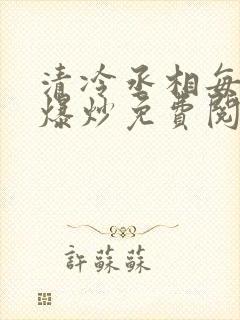 清冷丞相每
爆炒免費閱
許蘇蘇